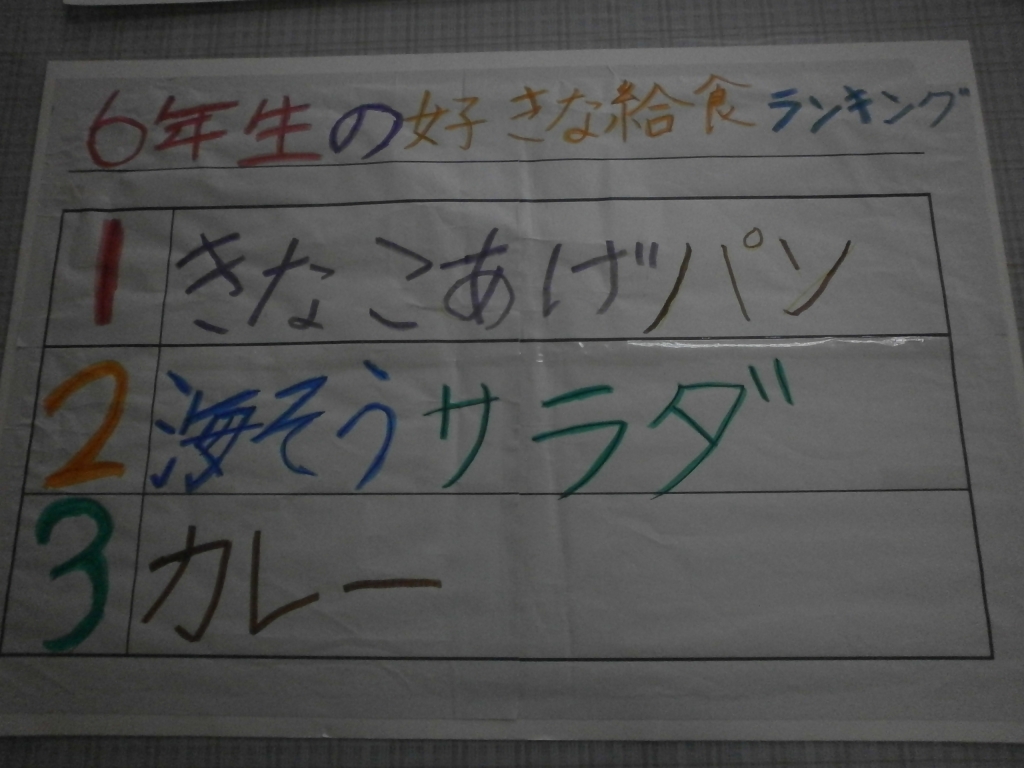 6年生の好きな給食ランキング
1 きなこあげパン
2 海そうサラダ
3 カレー